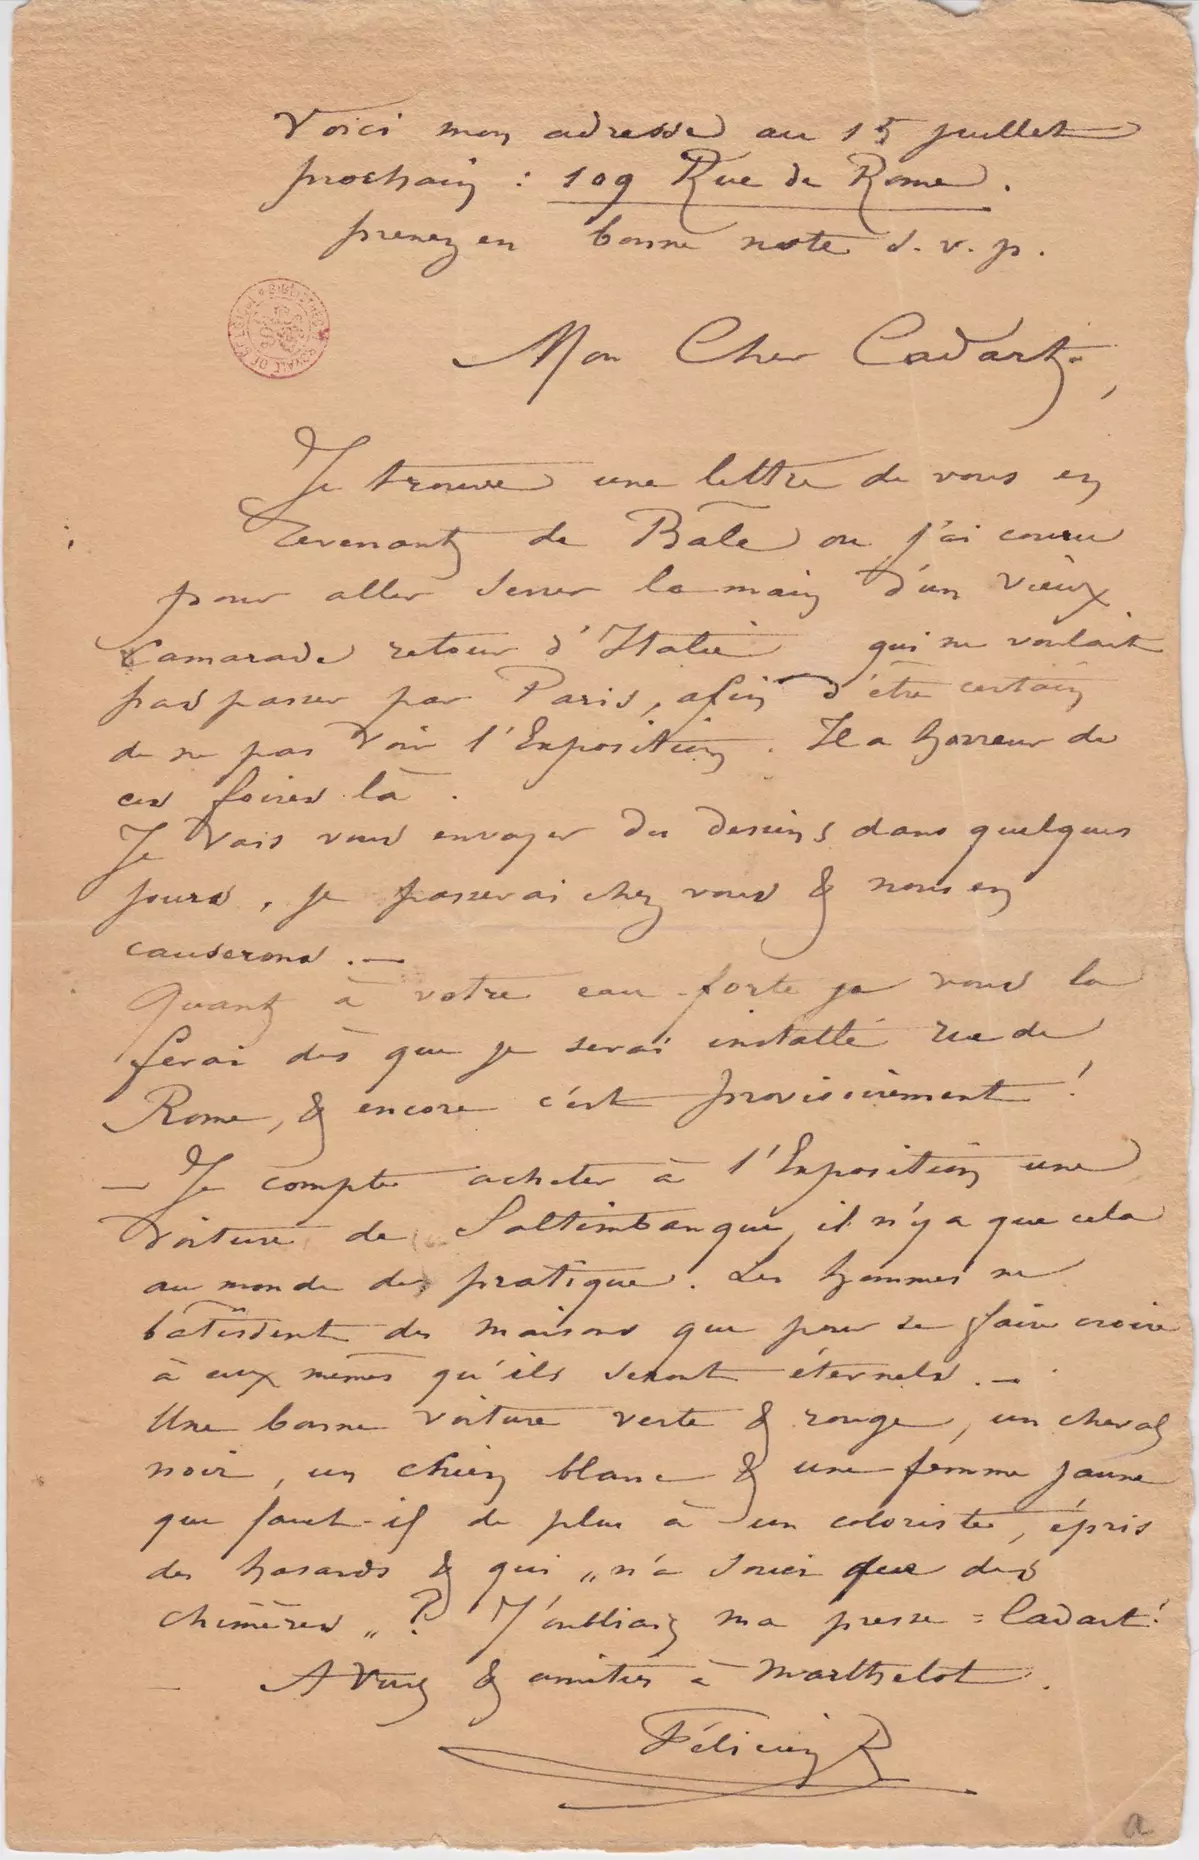 Voici mon adresse au 15 juillet
prochain : 109 Rue de Rome.
prenez en bonne note s. v. p.
Mon Cher Cadart,
Je trouve une lettre de vous en
revenant de Bâle ou j'ai couru
pour aller serrer la main d'un vieux
Camarade retour d'Italie qui ne voulait
pas passer par Paris, afin d'être certain
de ne pas voir l'Exposition. Il a horreur de
ces foires là.
Je vais vous envoyer des dessins dans quelques
jours, je passerai chez vous & nous en
causerons. —
Quant à votre eau-forte je vous la
ferai dès que je serai installé rue de
Rome, & encore c'est provisoirement !
— Je compte acheter à l'Exposition une
voiture de Saltimbanque, il n'y a que cela
au monde de pratique. Les hommes ne
bâtissent des maisons que pour se faire croire
à eux mêmes qu'ils seront éternels. —
Une bonne voiture verte & rouge, un cheval
noir, un chien blanc & une femme jaune
que faut-il de plus à un coloriste, épris
des hasards & qui „n'a souci que des
chimères„ ? J'oubliais ma presse = Cadart !
A Vous & amitiés à Marthelot.
Félicien R
a
BIBLIOTHEQUE ROYALE DE BELGIQUE